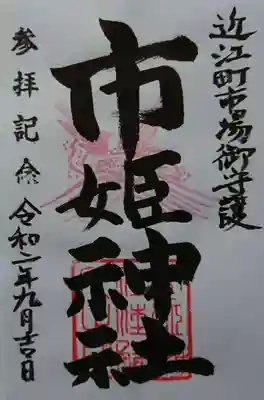 近江町市場御守護
市姫神社
参拝記念 令和二年九月吉日